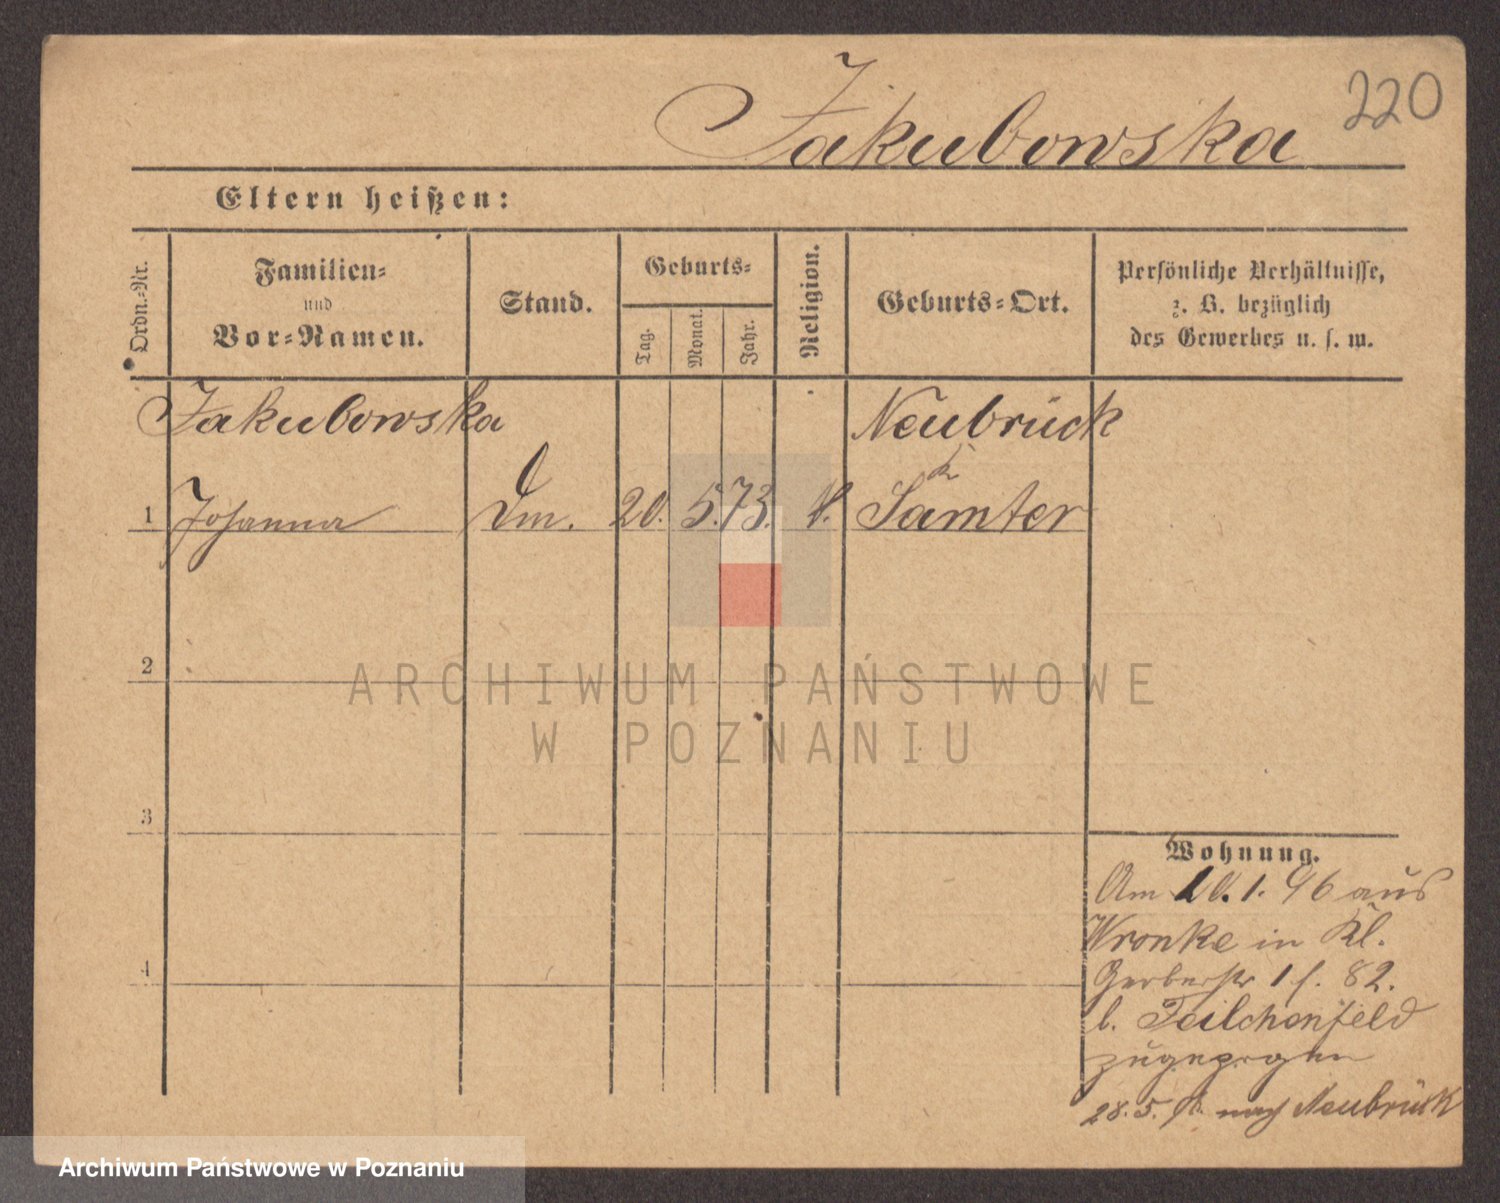 220
Jakubowska
Eltern heißen:
Ordn.-Nr.
Familien-
und
Vor-Namen.
Stand.
Geburts-
Tag.
Monat.
Jahr.
Religion.
Geburts-Ort.
Persönliche Verhältnisse,
z. B. bezüglich
des Gewerbes u. s. w.
Jakubowska
Neubrück
1 Johanna Dm. 20. 5. 73. k. Samter
2
ARCHIWUM PAŃSTWOWE
W POZNANIU
3
Wohnung.
Am 20. 1. 96 aus
Wronke in Kl.
Gerberstr 1 f. 82.
b. Feilchenfeld
zugezogen
4
28. 5. nach Neubrück
Archiwum Państwowe w Poznaniu